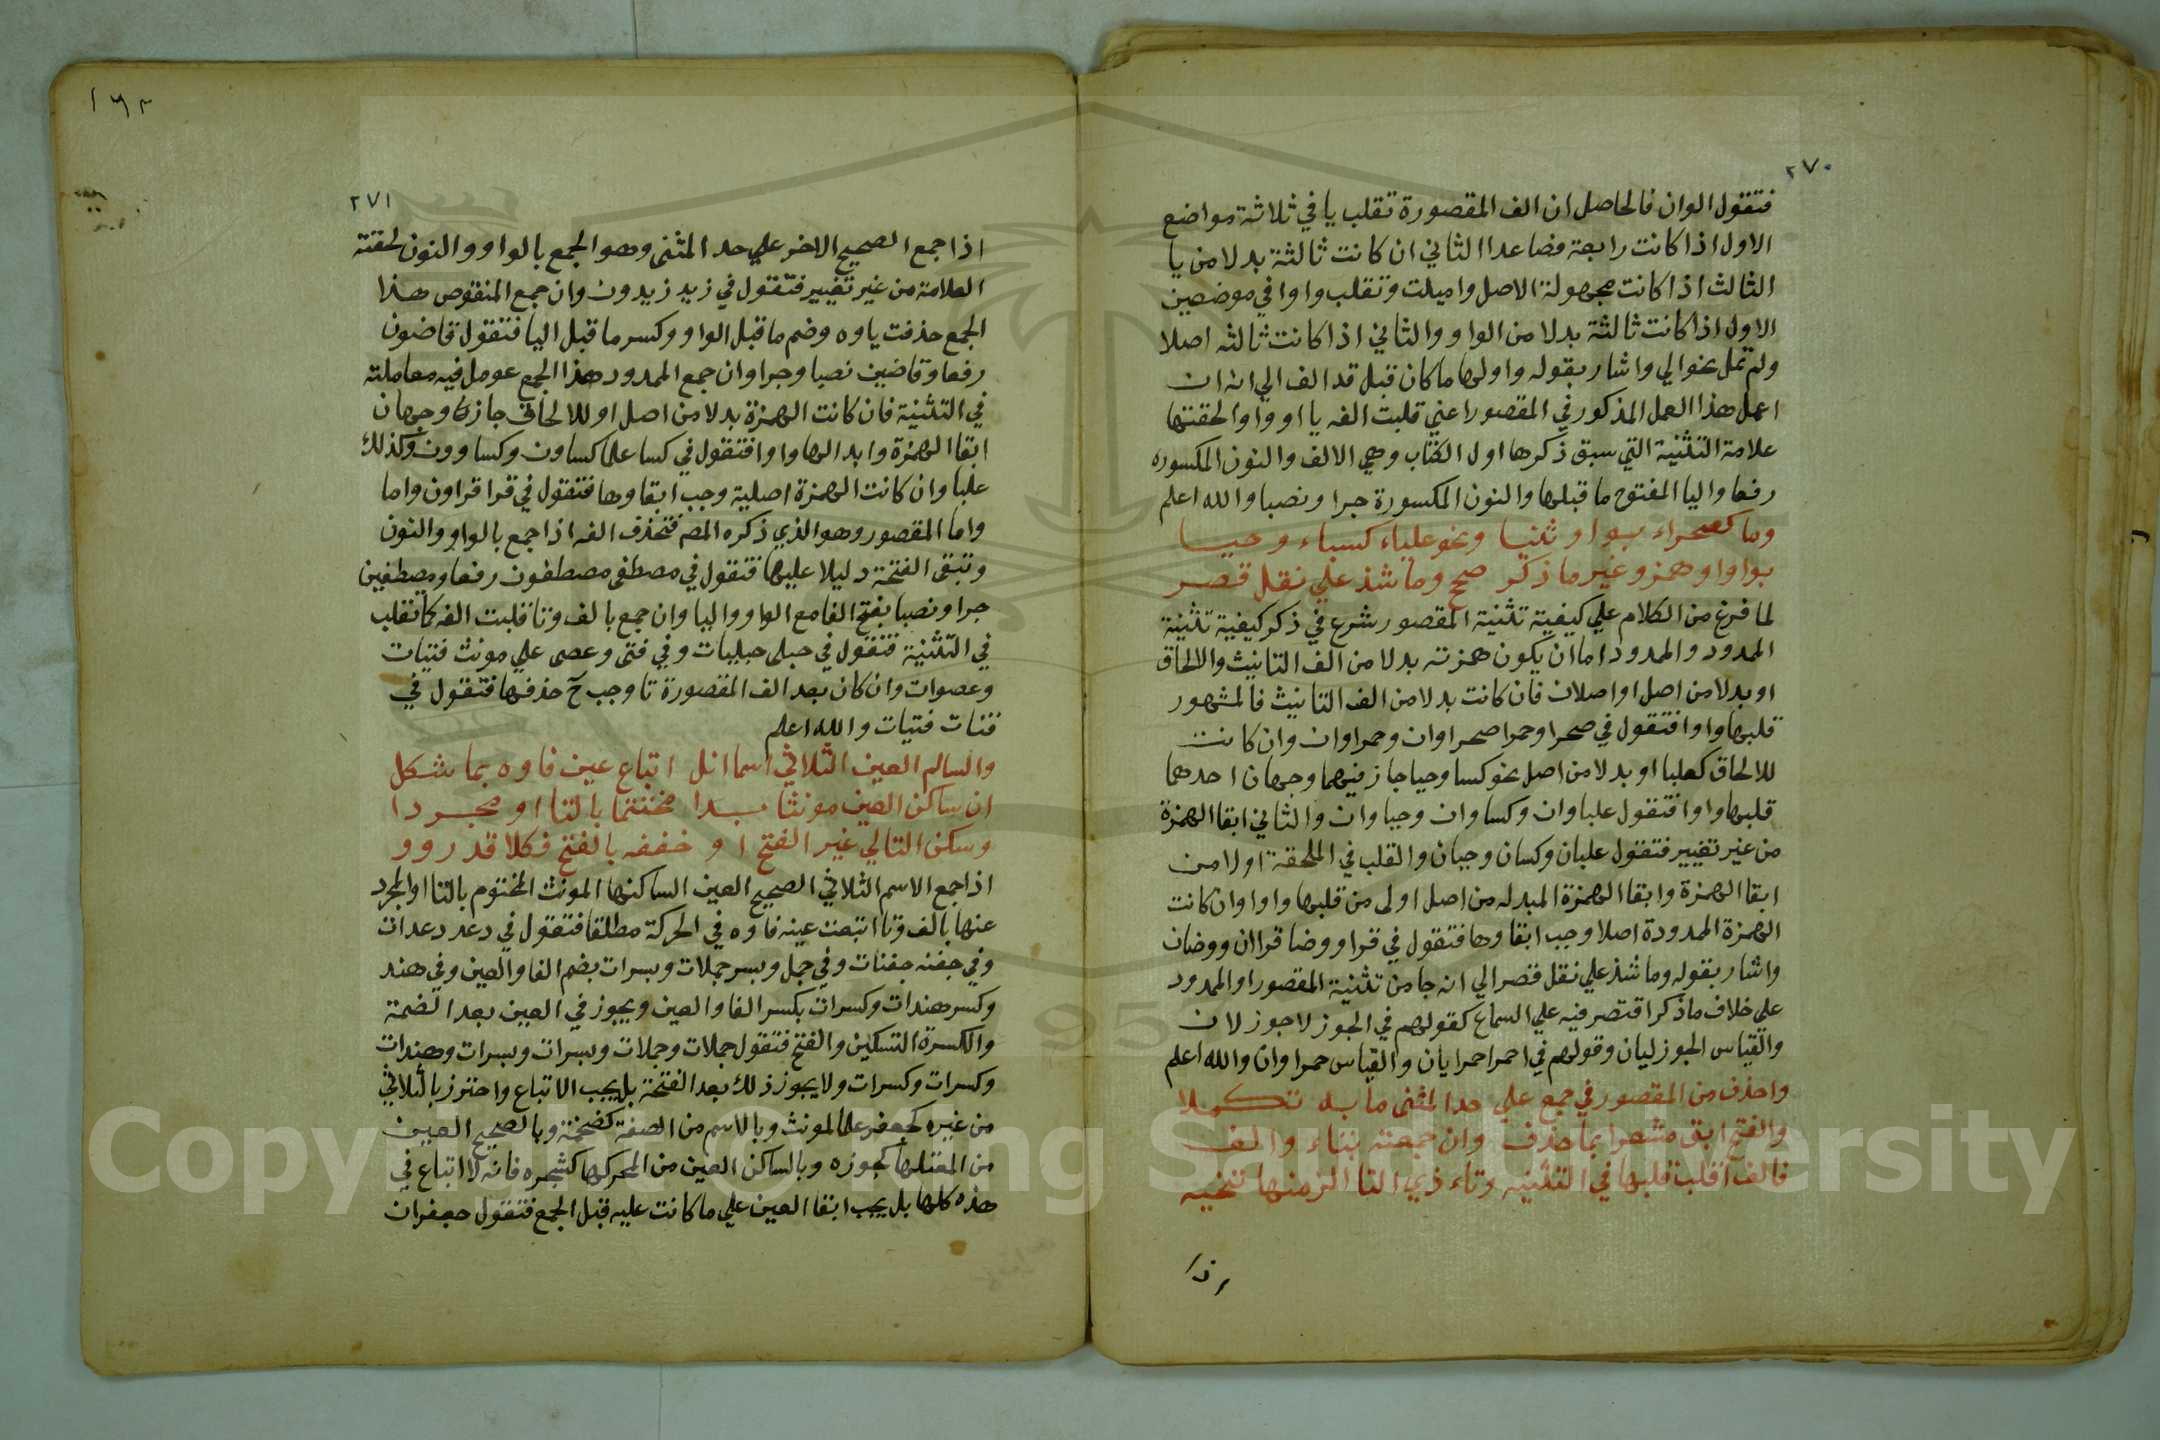 ٢٧٠
فتقول الوان فالحاصل ان الف المقصورة تقلب يا في ثلاثة مواضع
الاول اذا كانت رابعة فصاعدا الثاني ان كانت ثالثة بدلا من يا
الثالث اذا كانت مجهولة الاصل واميلت وتقلب واوا في موضعين
الاول اذا كانت ثالثة بدلا من الواو والثاني اذا كانت ثالثه اصلا
ولم تمل نحو الي واشار بقوله واولها ما كان قبل قد الف الي انه ان
اعمل هذا العمل المذكور في المقصور اعني قلبت الفه يا او واوا لحقتها
علامة التثنية التي سبق ذكرها اول الكتاب وهي الالف والنون المكسوره
رفعا واليا المفتوح ما قبلها والنون المكسورة جرا ونصبا والله اعلم
وما كصحراء بواو ثنيا ونحو علباء كساء وحيا
بواو او همز وغير ما ذكر صحح وما شذ علي نقل قصر
لما فرغ من الكلام علي كيفية تثنية المقصور شرع في ذكر كيفية تثنية
الممدود والممدود اما ان يكون همزته بدلا من الف التانيث والالحاق
او بدلا من اصل او اصلان فان كانت بدلا من الف التانيث فالمشهور
قلبها واوا فتقول في صحرا وحمرا صحراوان وحمراوان وان كانت
للالحاق كعلبا او بدلا من اصل نحو كسا وحيا جاز فيهما وجهان احدهما
قلبها واوا فتقول علباوان وكساوان وحياوان والثاني ابقا الهمزة
من غير تغيير فتقول علبان وكسان وحيان والقلب في الملحقة اولا من
ابقا الهمزة وابقا الهمزة المبدله من اصل اولى من قلبها واوا وان كانت
الهمزة الممدودة اصلا وجب ابقاوها فتقول في قرا ووضا قراان ووضان
واشار بقوله وما شذ علي نقل قصر الي انه جا من تثنية المقصور او الممدود
على خلاف ما ذكر اقتصر فيه علي السماع كقولهم في الخوزلا خوزلان
والقياس الخوزليان وقولهم في احمرا حمرايان والقياس حمراوان والله اعلم
واحذف من المقصور في جمع علي حد المثنى ما به تكملا
والفتح ابق مشعرا بما حذف وان جمعته بتاء والف
فالف اقلب قلبها في التثنيه وتاء ذي التا الزمنها تنحيه
اذا
١٦٢
٢٧١
اذا جمع الصحيح الاخر علي حد المثنى وهو الجمع بالواو والنون لحقته
العلامة من غير تغيير فتقول في زيد زيدون وان جمع المنقوص هذا
الجمع حذفت ياوه وضم ما قبل الواو وكسر ما قبل اليا فتقول قاضون
رفعا وقاضين نصبا وجرا وان جمع الممدود هذا الجمع عومل فيه معاملته
في التثنية فان كانت الهمزة بدلا من اصل او للالحاق جاز وجهان
ابقا الهمزة وابدالها واوا فتقول في كسا علما كساون وكساوون وكذلك
علبا وان كانت الهمزة اصلية وجب ابقاوها فتقول في قرا قراون واما
واما المقصور وهو الذي ذكره المص فتحذف الفه اذا جمع بالواو والنون
وتبقى الفتحة دليلا عليها فتقول في مصطفى مصطفون رفعا ومصطفين
جرا ونصبا بفتح الفا مع الواو واليا وان جمع بالف وتا قلبت الفه كما تقلب
في التثنية فتقول في حبلى حبليات وفي فتى وعصى علي مونث فتيات
وعصوات وان كان بعد الف المقصورة تا وجب ح حذفها فتقول في
فتات فتيات والله اعلم
والسالم العين الثلاثي اسما انل اتباع عين فاوه بما شكل
ان ساكن العين مونثا بدا مختتما بالتا او مجردا
وسكن التالي غير الفتح او خففه بالفتح فكلا قد رووا
اذا جمع الاسم الثلاثي الصحيح العين الساكنها المونث المختوم بالتا او المجرد
عنها بالف وتا اتبعت عينه فاوه في الحركة مطلقا فتقول في دعد دعدات
وفي جفنه جفنات وفي جمل وبسر جملات وبسرات بضم الفا والعين وفي هند
وكسر هندات وكسرات بكسر الفا والعين ويجوز في العين بعد الضمة
والكسرة التسكين والفتح فتقول جملات وجملات وبسرات وبسرات وهندات
وكسرات وكسرات ولا يجوز ذلك بعد الفتحة بل يجب الاتباع واحترز بالثلاثي
من غيره كجعفر علما لمونث وبالاسم من الصفة كضخمة وبالصحيح العين
من المعتلها كجوزه وبالساكن العين من المحركها كشجره فانه لا اتباع في
هذه كلها بل يجب ابقا العين علي ما كانت عليه قبل الجمع فتقول جعفرات
Copyright © King Saud University